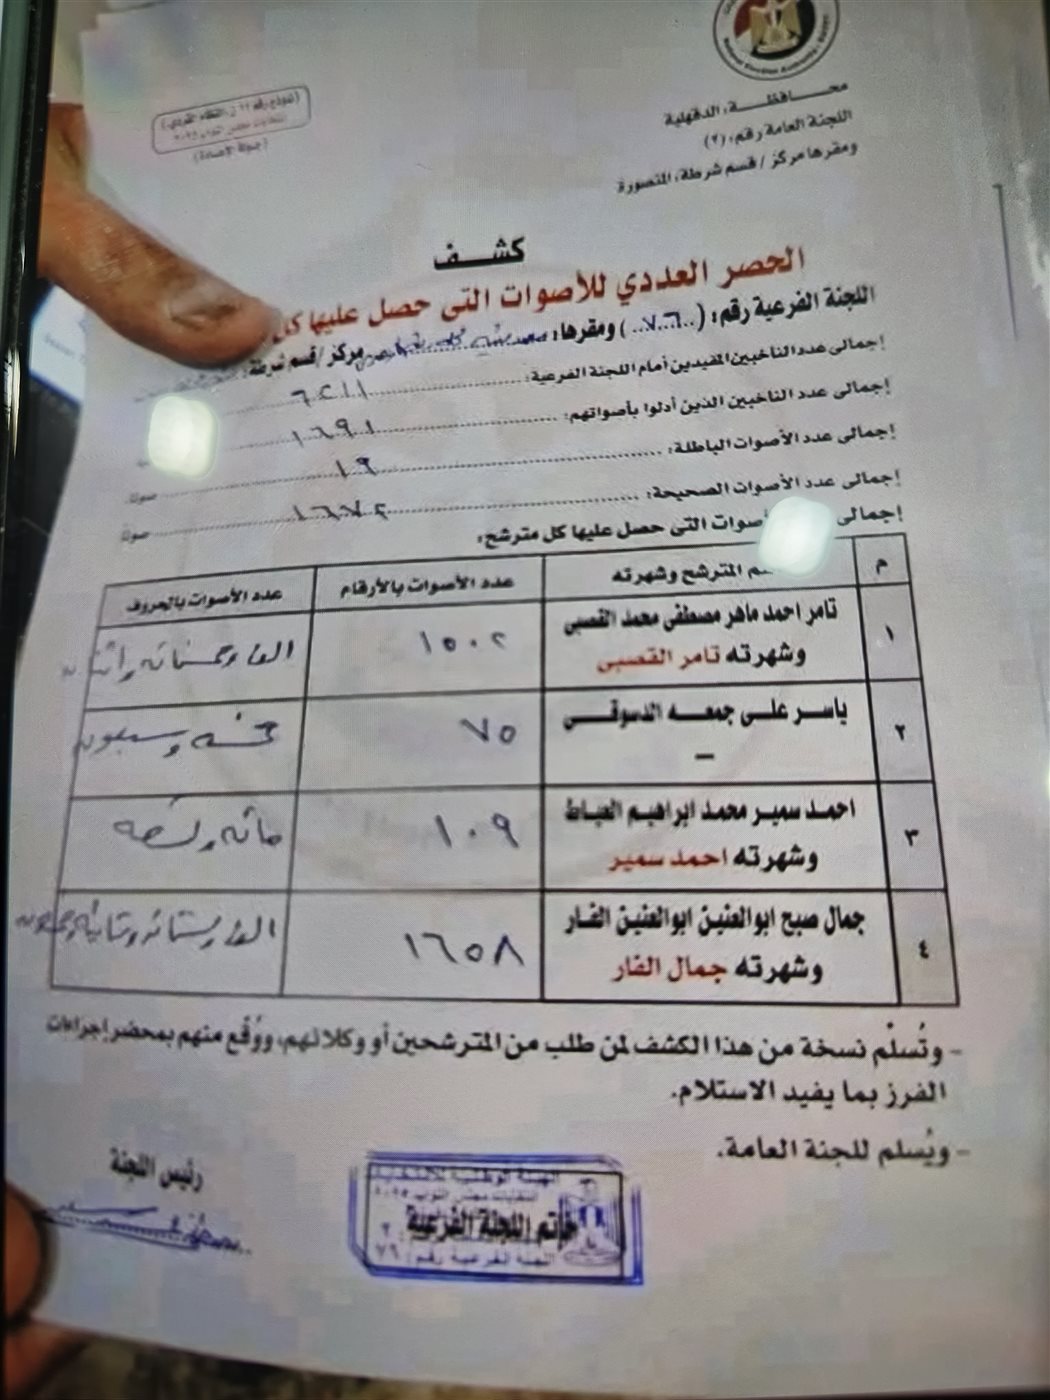 National Election Authority
محافظة: الدقهلية
اللجنة العامة رقم: (٢)
ومقرها مركز / قسم شرطة: المنصورة
(نموذج رقم ١١ ن. النظام الفردي)
انتخابات مجلس النواب ٢٠٢٥
(جولة الإعادة)
كشف
الحصر العددي للأصوات التى حصل عليها كل
اللجنة الفرعية رقم: (٧٦) ومقرها: مركز/قسم شرطة:
إجمالى عدد الناخبين المقيدين أمام اللجنة الفرعية: ٦٢١١
إجمالى عدد الناخبين الذين أدلوا بأصواتهم: ١٦٩١
إجمالى عدد الأصوات الباطلة: ١٩ صوتا
إجمالى عدد الأصوات الصحيحة: ١٦٧٢ صوتا
إجمالى الأصوات التى حصل عليها كل مترشح:
م اسم المترشح وشهرته عدد الأصوات بالأرقام عدد الأصوات بالحروف
١ تامر احمد ماهر مصطفى محمد القصبى ١٥٠٢ الف وخمسمائه واثنان
وشهرته تامر القصبى
٢ ياسر على جمعه الدسوقى ٧٥ خمسه وسبعون
–
٣ احمد سمير محمد ابراهيم العياط ١٠٩ مائه وتسعه
وشهرته احمد سمير
٤ جمال صبح ابوالعنين ابوالعنين الفار ١٦٥٨ الف وستمائه وثمانيه وخمسون
وشهرته جمال الفار
- وتُسلّم نسخة من هذا الكشف لمن طلب من المترشحين أو وكلائهم، ووُقّع منهم بمحضر إجراءات
الفرز بما يفيد الاستلام.
- ويُسلم للجنة العامة.
رئيس اللجنة
الهيئة الوطنية للانتخابات
انتخابات مجلس النواب ٢٠٢٥
خاتم اللجنة الفرعية
٢
لجنة الفرعية رقم ٧٦